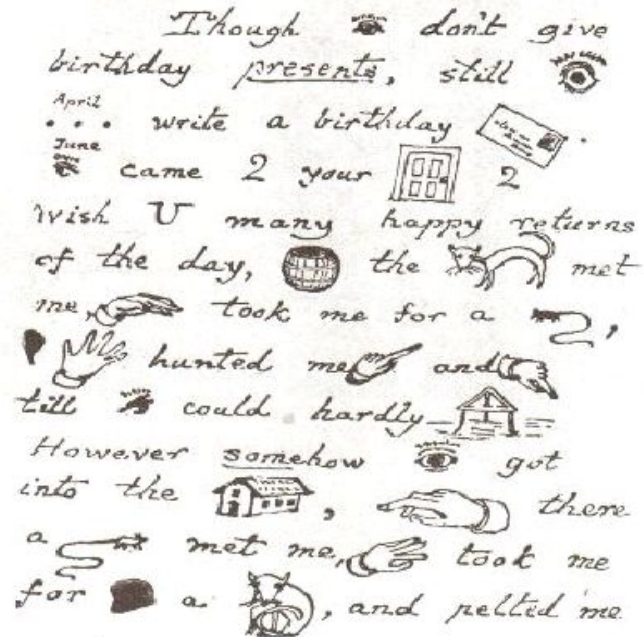 Though don't give
birthday presents, still
April
... write a birthday .
June
came 2 your 2
wish U many happy returns
of the day, the met
me, took me for a ,
hunted me and
till could hardly
However somehow got
into the , there
a met me, took me
for a , and pelted me